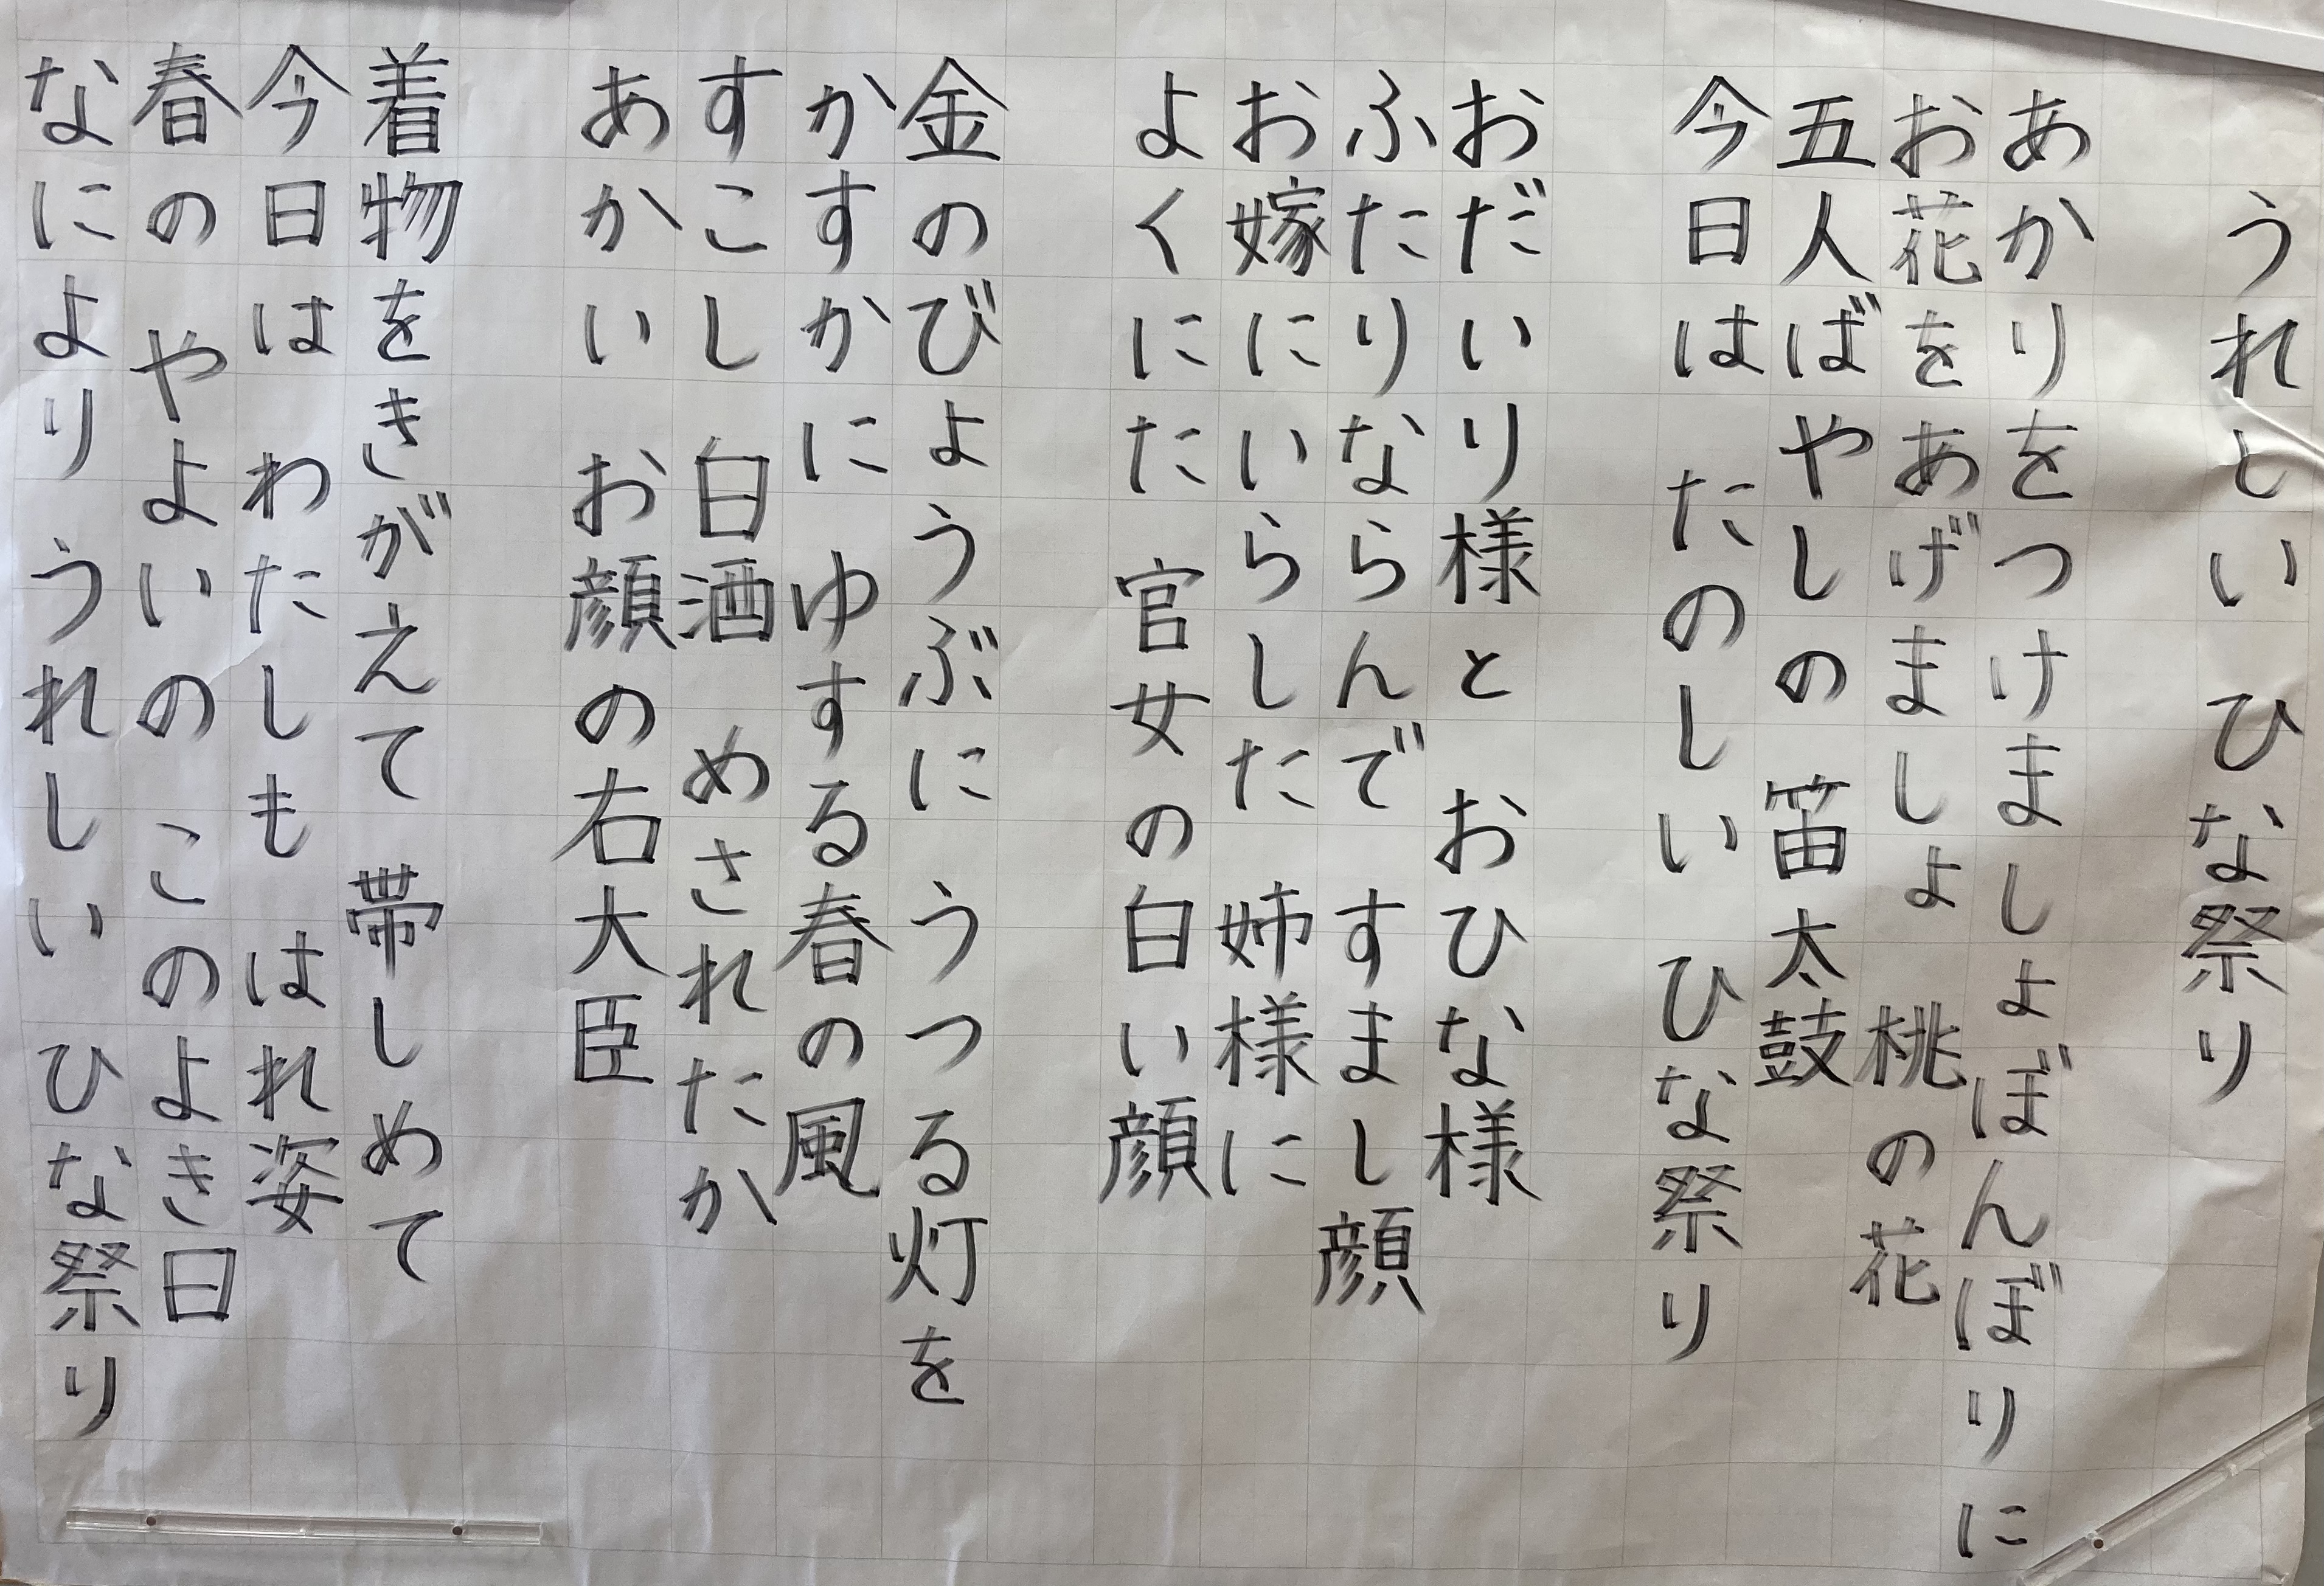 うれしい ひな祭り
あかりをつけましょぼんぼりに
お花をあげましょ 桃の花
五人ばやしの 笛太鼓
今日は たのしい ひな祭り
おだいり様と おひな様
ふたりならんで すまし顔
お嫁にいらした 姉様に
よくにた 官女の白い顔
金のびょうぶに うつる灯を
かすかに ゆする春の風
すこし 白酒 めされたか
あかい お顔の右大臣
着物をきがえて 帯しめて
今日は わたしも はれ姿
春の やよいの このよき日
なにより うれしい ひな祭り